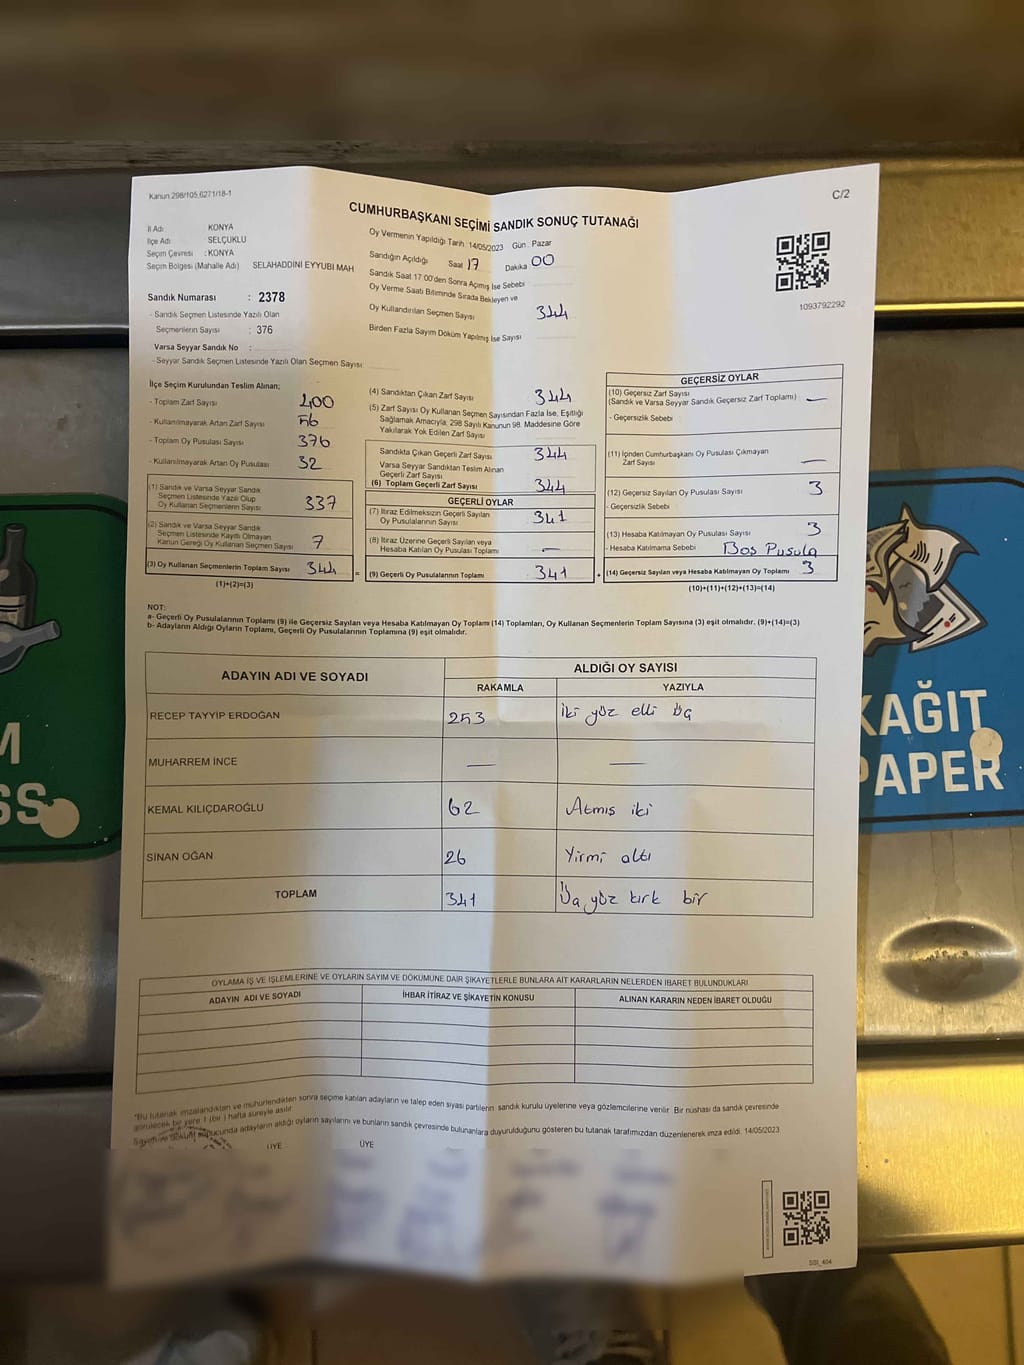 Kanun 298/105,6271/18-1
C/2
CUMHURBAŞKANI SEÇİMİ SANDIK SONUÇ TUTANAĞI
İl Adı KONYA
İlçe Adı SELÇUKLU
Seçim Çevresi : KONYA
Seçim Bölgesi (Mahalle Adı) SELAHADDİNİ EYYUBİ MAH
Sandık Numarası : 2378
- Sandık Seçmen Listesinde Yazılı Olan
Seçmenlerin Sayısı : 376
Varsa Seyyar Sandık No :
- Seyyar Sandık Seçmen Listesinde Yazılı Olan Seçmen Sayısı
Oy Vermenin Yapıldığı Tarih :14/05/2023 Gün : Pazar
Sandığın Açıldığı Saat 17 Dakika 00
Sandık Saat 17:00'den Sonra Açmış İse Sebebi
Oy Verme Saati Bitiminde Sırada Bekleyen ve
Oy Kullandırılan Seçmen Sayısı 344
Birden Fazla Sayım Döküm Yapılmış İse Sayısı
1093792292
İlçe Seçim Kurulundan Teslim Alınan;
- Toplam Zarf Sayısı 400
- Kullanılmayarak Artan Zarf Sayısı 56
- Toplam Oy Pusulası Sayısı 376
- Kullanılmayarak Artan Oy Pusulası 32
(1) Sandık ve Varsa Seyyar Sandık
Seçmen Listesinde Yazılı Olup
Oy Kullanan Seçmenlerin Sayısı 337
(2) Sandık ve Varsa Seyyar Sandık
Seçmen Listesinde Kayıtlı Olmayan
Kanun Gereği Oy Kullanan Seçmen Sayısı 7
(3) Oy Kullanan Seçmenlerin Toplam Sayısı 344 =
(1)+(2)=(3)
(4) Sandıktan Çıkan Zarf Sayısı 344
(5) Zarf Sayısı Oy Kullanan Seçmen Sayısından Fazla İse, Eşitliği
Sağlamak Amacıyla, 298 Sayılı Kanunun 98. Maddesine Göre
Yakılarak Yok Edilen Zarf Sayısı
Sandıkta Çıkan Geçerli Zarf Sayısı 344
Varsa Seyyar Sandıktan Teslim Alınan
Geçerli Zarf Sayısı
(6) Toplam Geçerli Zarf Sayısı 344
GEÇERLİ OYLAR
(7) İtiraz Edilmeksizin Geçerli Sayılan
Oy Pusulalarının Sayısı 341
(8) İtiraz Üzerine Geçerli Sayılan veya
Hesaba Katılan Oy Pusulası Toplamı —
(9) Geçerli Oy Pusulalarının Toplamı 341 +
GEÇERSİZ OYLAR
(10) Geçersiz Zarf Sayısı
(Sandık ve Varsa Seyyar Sandık Geçersiz Zarf Toplamı) —
- Geçersizlik Sebebi
(11) İçinden Cumhurbaşkanı Oy Pusulası Çıkmayan
Zarf Sayısı —
(12) Geçersiz Sayılan Oy Pusulası Sayısı 3
- Geçersizlik Sebebi
(13) Hesaba Katılmayan Oy Pusulası Sayısı 3
- Hesaba Katılmama Sebebi Boş Pusula
(14) Geçersiz Sayılan veya Hesaba Katılmayan Oy Toplamı 3
(10)+(11)+(12)+(13)=(14)
NOT:
a- Geçerli Oy Pusulalarının Toplamı (9) ile Geçersiz Sayılan veya Hesaba Katılmayan Oy Toplamı (14) Toplamları, Oy Kullanan Seçmenlerin Toplam Sayısına (3) eşit olmalıdır. (9)+(14)=(3)
b- Adayların Aldığı Oyların Toplamı, Geçerli Oy Pusulalarının Toplamına (9) eşit olmalıdır.
ADAYIN ADI VE SOYADI ALDIĞI OY SAYISI
RAKAMLA YAZIYLA
RECEP TAYYİP ERDOĞAN 253 İki yüz elli üç
MUHARREM İNCE — —
KEMAL KILIÇDAROĞLU 62 Atmış iki
SİNAN OĞAN 26 Yirmi altı
TOPLAM 341 Üç yüz kırk bir
OYLAMA İŞ VE İŞLEMLERİNE VE OYLARIN SAYIM VE DÖKÜMÜNE DAİR ŞİKAYETLERLE BUNLARA AİT KARARLARIN NELERDEN İBARET BULUNDUKLARI
ADAYIN ADI VE SOYADI İHBAR İTİRAZ VE ŞİKAYETİN KONUSU ALINAN KARARIN NEDEN İBARET OLDUĞU
*Bu tutanak imzalandıktan ve mühürlendikten sonra seçime katılan adayların ve talep eden siyasi partilerin sandık kurulu üyelerine veya gözlemcilerine verilir. Bir nüshası da sandık çevresinde
görülecek bir yere 1 (bir) hafta süreyle asılır.
Sayım ve döküm sonucunda adayların aldığı oyların sayılarını ve bunların sandık çevresinde bulunanlara duyurulduğunu gösteren bu tutanak tarafımızdan düzenlenerek imza edildi. 14/05/2023
ÜYE ÜYE
SSİ_404
M
SS
KAĞIT
PAPER